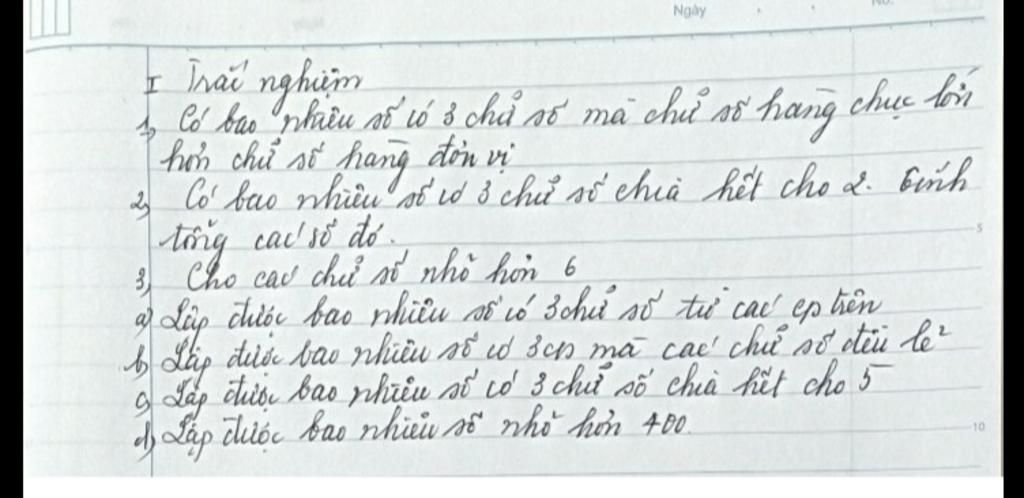 Ngày
No.
I Trắc nghiệm
1, Có bao nhiêu số có 3 chữ số mà chữ số hàng chục lớn
hơn chữ số hàng đơn vị
2, Có bao nhiêu số có 3 chữ số chia hết cho 2. tính
tổng các số đó.
3, Cho các chữ số nhỏ hơn 6
a) Lập được bao nhiêu số có 3 chữ số từ các cs trên
b) Lập được bao nhiêu số có 3 cs mà các chữ số đều lẻ
c) Lập được bao nhiêu số có 3 chữ số chia hết cho 5
d) Lập được bao nhiêu số nhỏ hơn 400.
5
10